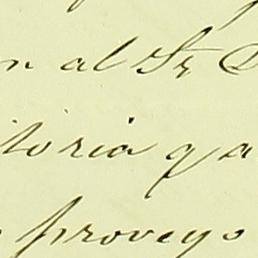 n al Sr
itoria q a
proveyo